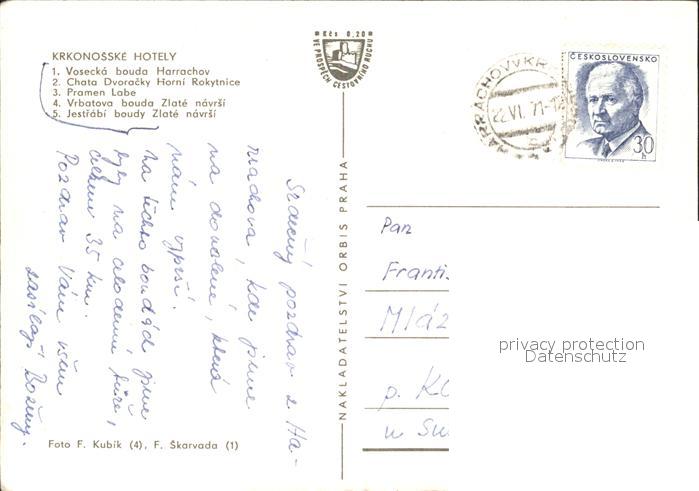 KRKONOŠSKÉ HOTELY
1. Vosecká bouda Harrachov
2. Chata Dvoračky Horní Rokytnice
3. Pramen Labe
4. Vrbatova bouda Zlaté návrší
5. Jestřábí boudy Zlaté návrší
Srdečný pozdrav z Ha-
rrachova, kde jsme
na dovolené, která
nám vyprší.
Na těchto boudách jsme
byli na celodenní túře,
celkem 35 km.
Pozdrav Vám všem
zasílají
Foto F. Kubík (4), F. Škarvada (1)
Kčs 0,20
VE PROSPĚCH CESTOVNÍHO RUCHU
NAKLADATELSTVÍ ORBIS PRAHA
HARRACHOV V KRK
22.VI. 71-1
ČESKOSLOVENSKO
30 h
Pan
Franti
Mláz
p. Kl
privacy protection
Datenschutz